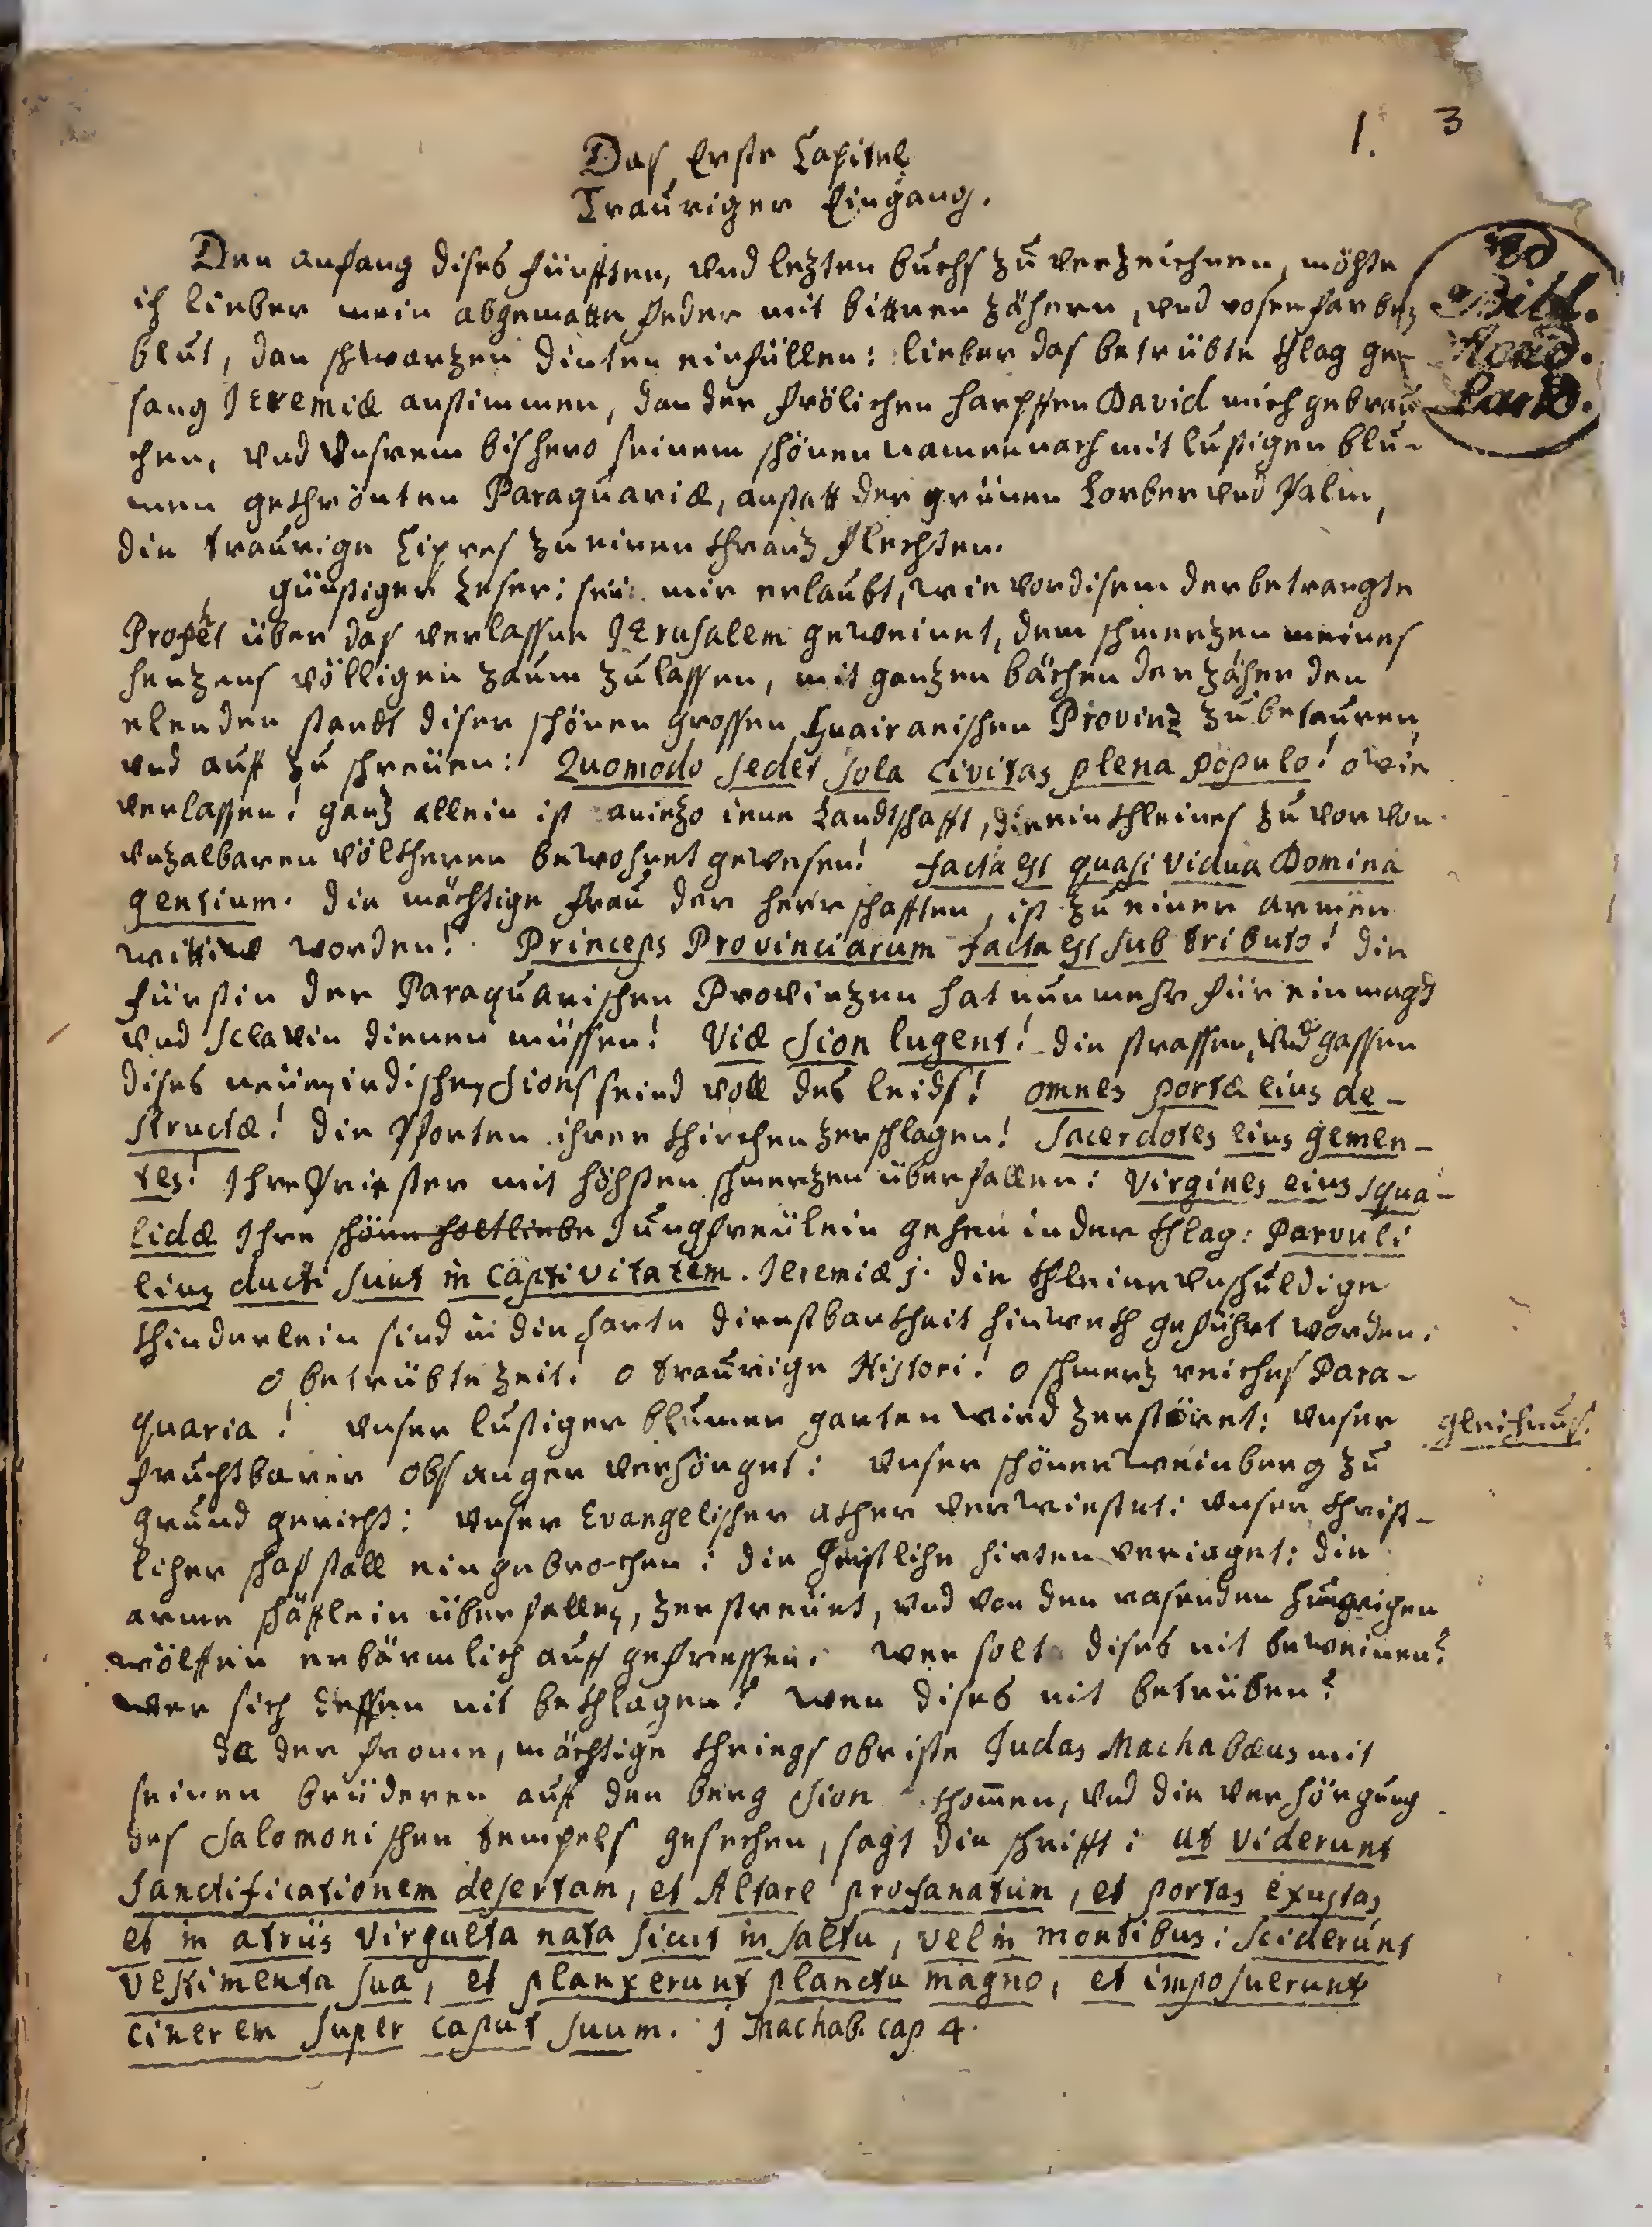 1. 3
Das Erste Capitel
Trauriger Eingang.
Den anfang dises fünfften, vnd lezten buchs zu verzeichnen, möhte
ich lieber mein abgematte feder mit bittren zähern, vnd rosenfarben
blut, dan schwarzen dinten einfüllen: lieber das betrübte khlag ge-
sang Jeremiæ anstimmen, dan der frölichen harpffen David mich gebrau
chen, vnd vnsrem bishero seinem schönen namen nach mit lustigen blu-
men gekhrönten Paraquariæ, anstatt der grünen Lorber vnd Palm,
die traurige Cipres zu einen khranz flechten.
günstiger Leser: seie mir erlaubt, wie vor disem der betrangte
Prophet über das verlassne Jerusalem geweinet, dem schmerzen meines
herzens völligen zaum zulassen, mit ganzen bächen der zäher den
elenden standt diser schönen grossen Guairanischen Provinz zu betauren,
vnd auff zu schreüen: Quomodo sedet sola civitas plena populo! o wie
verlassen! ganz allein ist aniezo iene Landtschafft, die ein khleines zu vor von
vnzalbaren völkheren bewohnet gewesen! facta est quasi vidua Domina
gentium. die mächtige frau der herrschafften, ist zu einer armen
wittiw worden! Princeps Provinciarum facta est sub tributo! die
fürstin der Paraquarischen Provinzen hat nunmehr für ein magd
vnd sclavin dienen müssen! Viæ Sion lugent! die strassen, vnd gassen
dises neüen indischen Sions seind voll des leids! omnes portæ eius de-
structæ! die Pforten ihrer khirchen zerschlagen! Sacerdotes eius gemen-
tes! Ihre Priester mit höhsten schmerzen überfallen: Virgines eius squa-
lidæ Ihre schöne holtliebe Jungfreülein gehen in der khlag: Parvuli
eius ducti sunt in captivitatem. Jeremiæ j. die khleine vnschuldige
khinderlein sind in die harte dienstbarkheit hinwekh geführt worden.
o betrübte zeit! o traurige Histori! o schmerz reiches Para-
quaria! vnser lustiger blumen garten wird zerstöret: vnser
gleichnus.
fruchtbarer obs anger verhörget: vnser schöner weinberg zu
grund gericht: vnser Evangelischer akher verwiestet: vnser khrist-
licher schaf stall eingebrochen: die Geistlihe hirten veriaget: die
arme schäfflein überfallen, zerstreüet, vnd von den rasenden hungrigen
wölffen erbärmlich auff gefressen. wer solt dises nit beweinen?
wer sich dessen nit bekhlagen? wen dises nit betrüben?
da der frome, mächtige khriegs obriste Judas Machabæus mit
seinen brüderen auf den berg Sion khom̃en, vnd die verhörgung
des Salomonischen tempels gesechen, sagt die schrifft: ut viderunt
sanctificationem desertam, et Altare profanatum, et portas exustas,
et in atriis virgulta nata sicut in saltu, vel in montibus: sciderunt
vestimenta sua, et planxerunt planctu magno, et imposuerunt
cinerem super caput suum. j Machab. cap 4.